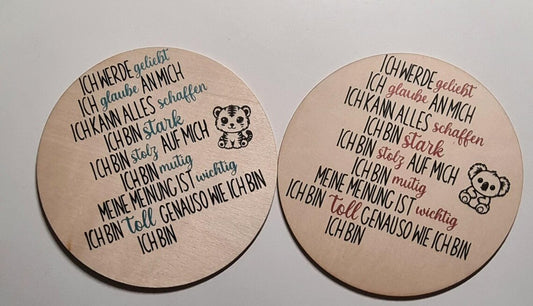 ICH WERDE geliebt
ICH glaube AN MICH
ICH KANN ALLES schaffen
ICH BIN stark
ICH BIN stolz AUF MICH
ICH BIN mutig
MEINE MEINUNG IST wichtig
ICH BIN toll GENAUSO WIE ICH BIN
ICH BIN
ICH WERDE geliebt
ICH glaube AN MICH
ICH KANN ALLES schaffen
ICH BIN stark
ICH BIN stolz AUF MICH
ICH BIN mutig
MEINE MEINUNG IST wichtig
ICH BIN toll GENAUSO WIE ICH BIN
ICH BIN